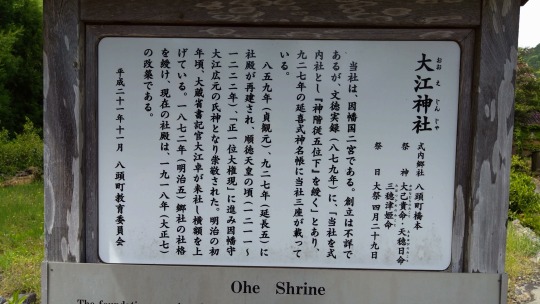 大江神社
おおえじんじゃ
式内郷社 八頭町橋本
祭神 大己貴命 天穂日命
三穂津姫命
祭日 大祭四月二十九日
当社は、因幡国二宮である。創立は不詳で
あるが、文徳実録(八七九年)に、「当社を式
内社とし『神階従五位下』を綬く」とあり、
九二七年の延喜式神名帳に当社三座が載って
いる。
八五九年(貞観元)、九二七年(延長五)に
社殿が再建され、順徳天皇の頃(一二一一~
一二二二年)、「正一位大権現」に進み因幡守
大江広元の氏神となり崇敬された。明治の初
年頃、大蔵省書記官大江卓が来社し横額を上
げている。一八七二年(明治五)郷社の社格
を続け、現在の社殿は、一九一八年(大正七)
の改築である。
平成二十一年十一月 八頭町教育委員会
Ohe Shrine